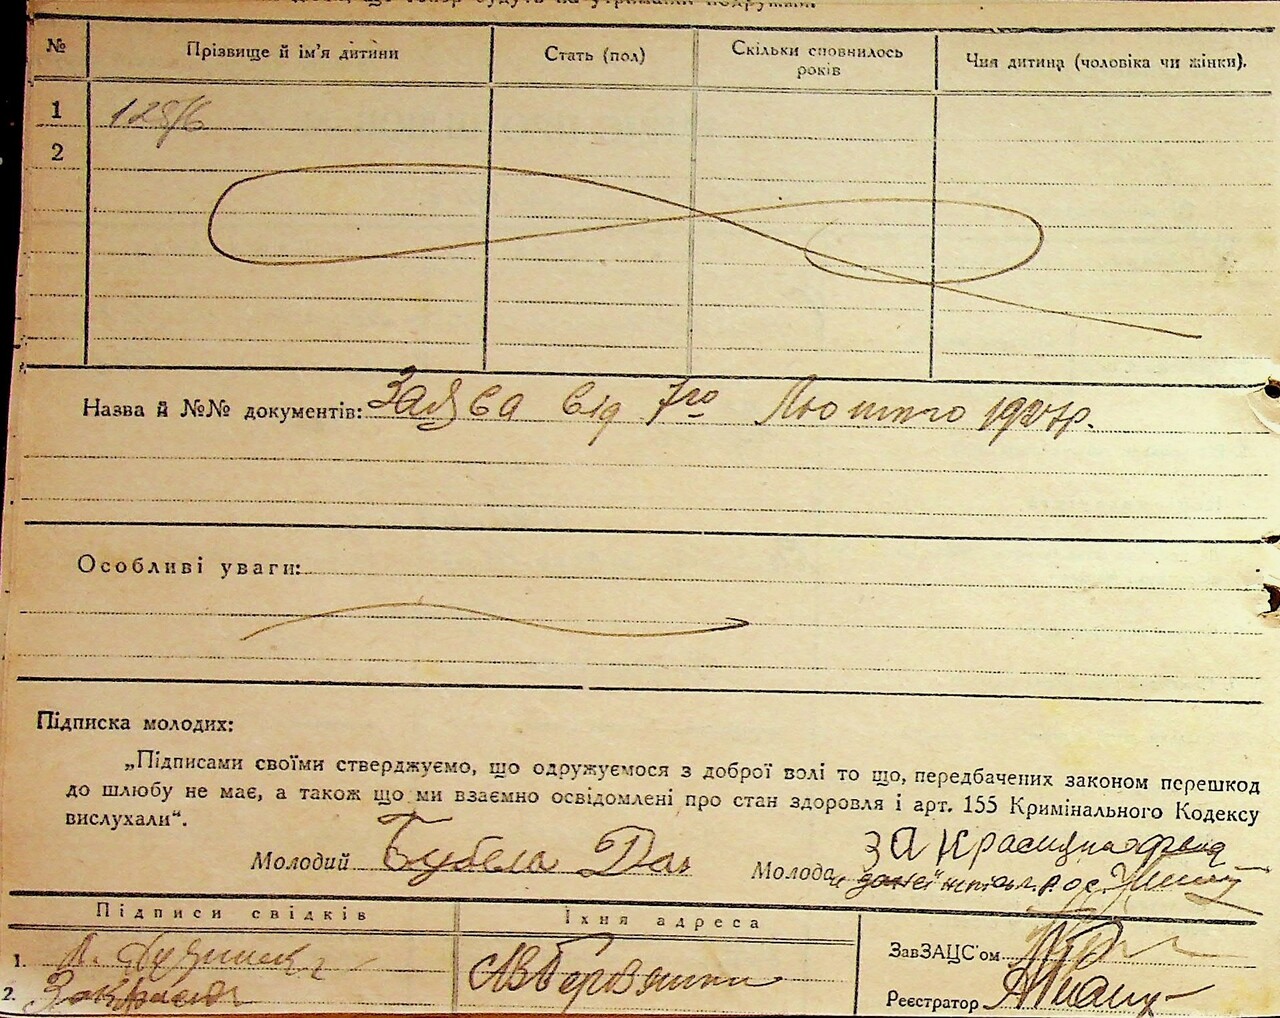 № Прізвище й ім'я дитини Стать (пол) Скільки сповнилось років Чия дитина (чоловіка чи жінки).
1 128/6
2
Назва й №№ документів: Заява від 7го Лютого 1927р.
Особливі уваги:
Підписка молодих:
„Підписами своїми стверджуємо, що одружуємося з доброї волі то що, передбачених законом перешкод
до шлюбу не має, а також що ми взаємно освідомлені про стан здоровля і арт. 155 Кримінального Кодексу
вислухали“.
Молодий Бубела Дан Молода за
Підписи свідків Їхня адреса
1. ЗавЗАЦС'ом
2. Реєстратор